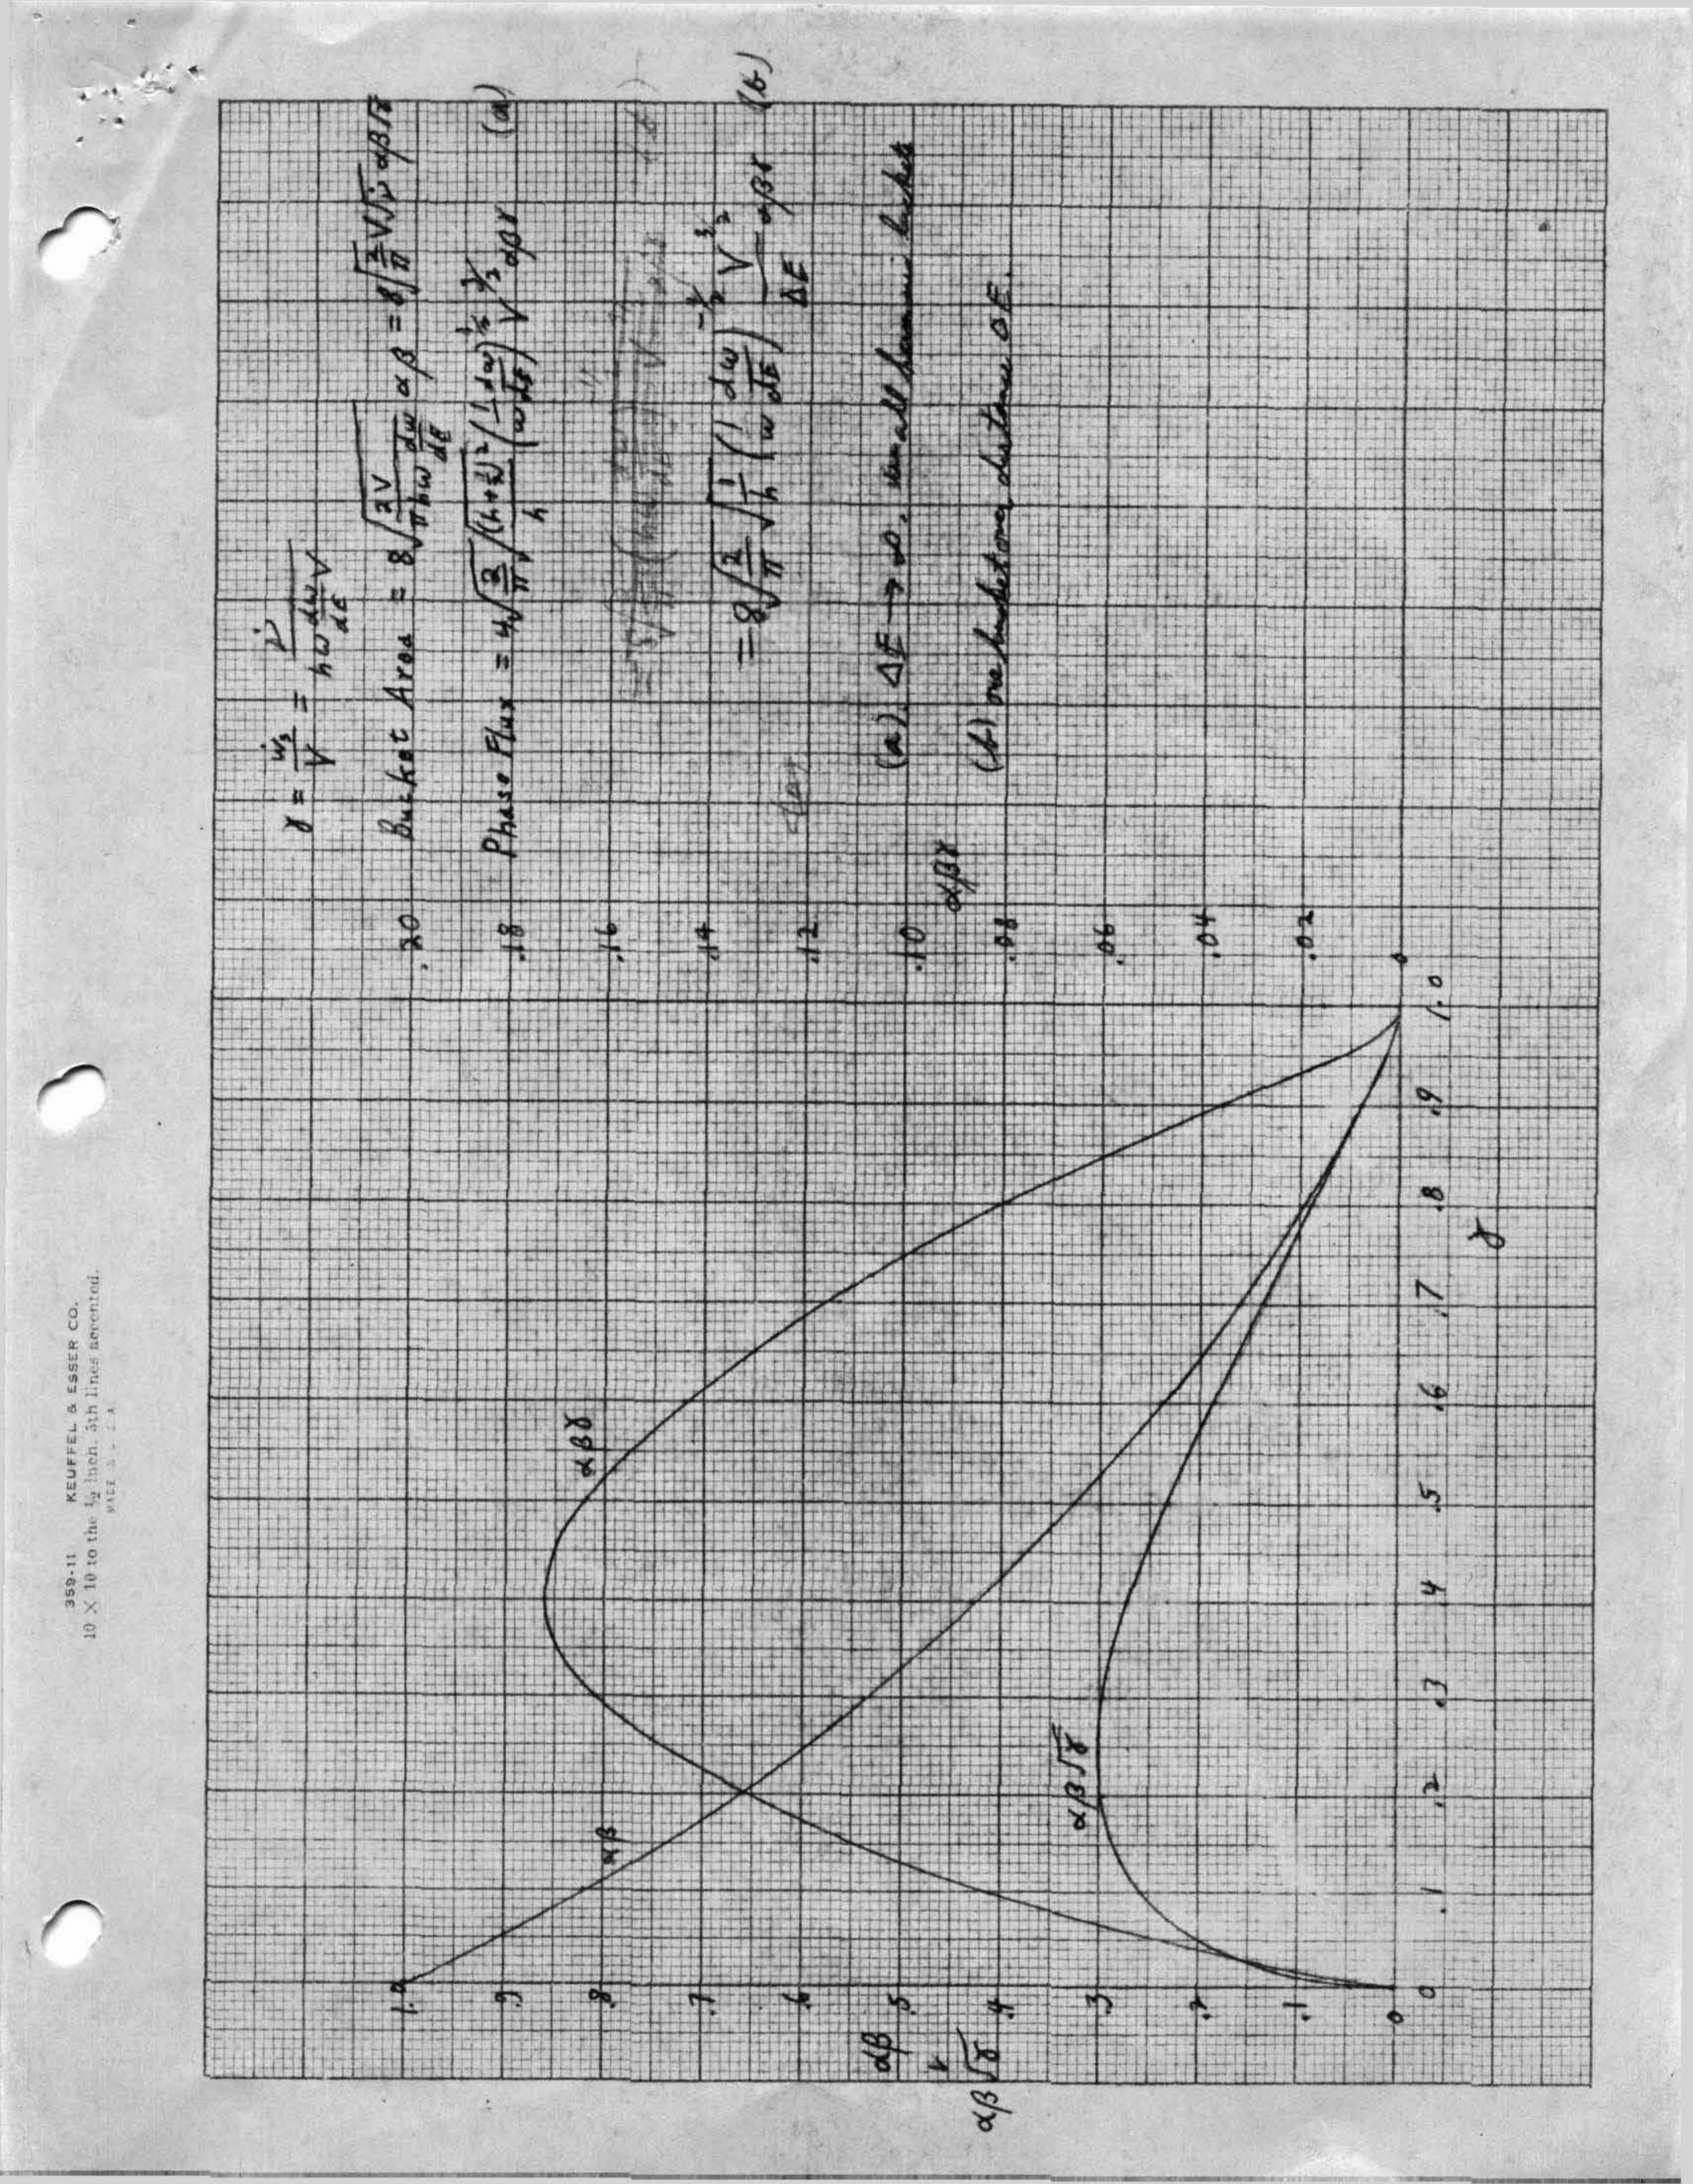 359-11 KEUFFEL & ESSER CO.
10 X 10 to the ½ inch, 5th lines accented.
MADE IN U.S.A.
γ = ẇs/V = ν̇/(hω dω/dE V)
Bucket Area = 8√(2V/(πhω dω/dE)) αβ = 8√(2/π) V√ν̇ αβ√γ
Phase Flux = 4√(2/π) √((h+½)²/h) (1/ω dω/dE)^½ V^3/2 αβγ (a)
= 8√(2/π) √(1/h) (1/ω dω/dE)^-½ V^3/2/ΔE αβγ (b)
(a). ΔE → ∞. all harmonic buckets
(b) one bucket over distance ΔE.
αβ
αβ√γ
1.0
.9
.8
.7
.6
.5
.4
.3
.2
.1
0
αβ
αβγ
αβ√γ
.20
.18
.16
.14
.12
.10
.08
.06
.04
.02
0
αβγ
0 .1 .2 .3 .4 .5 .6 .7 .8 .9 1.0
γ